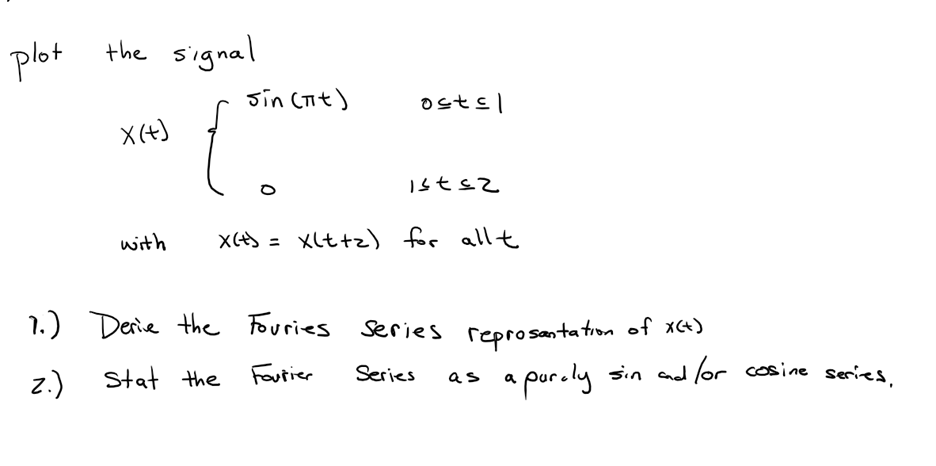 plot the signal
sin(πt) 0≤t≤1
x(t) {
0 1≤t≤2
with x(t) = x(t+2) for all t
1.) Derie the Fouries Series reprosantation of x(t)
2.) Stat the Fourier Series as a purely sin and/or cosine series.